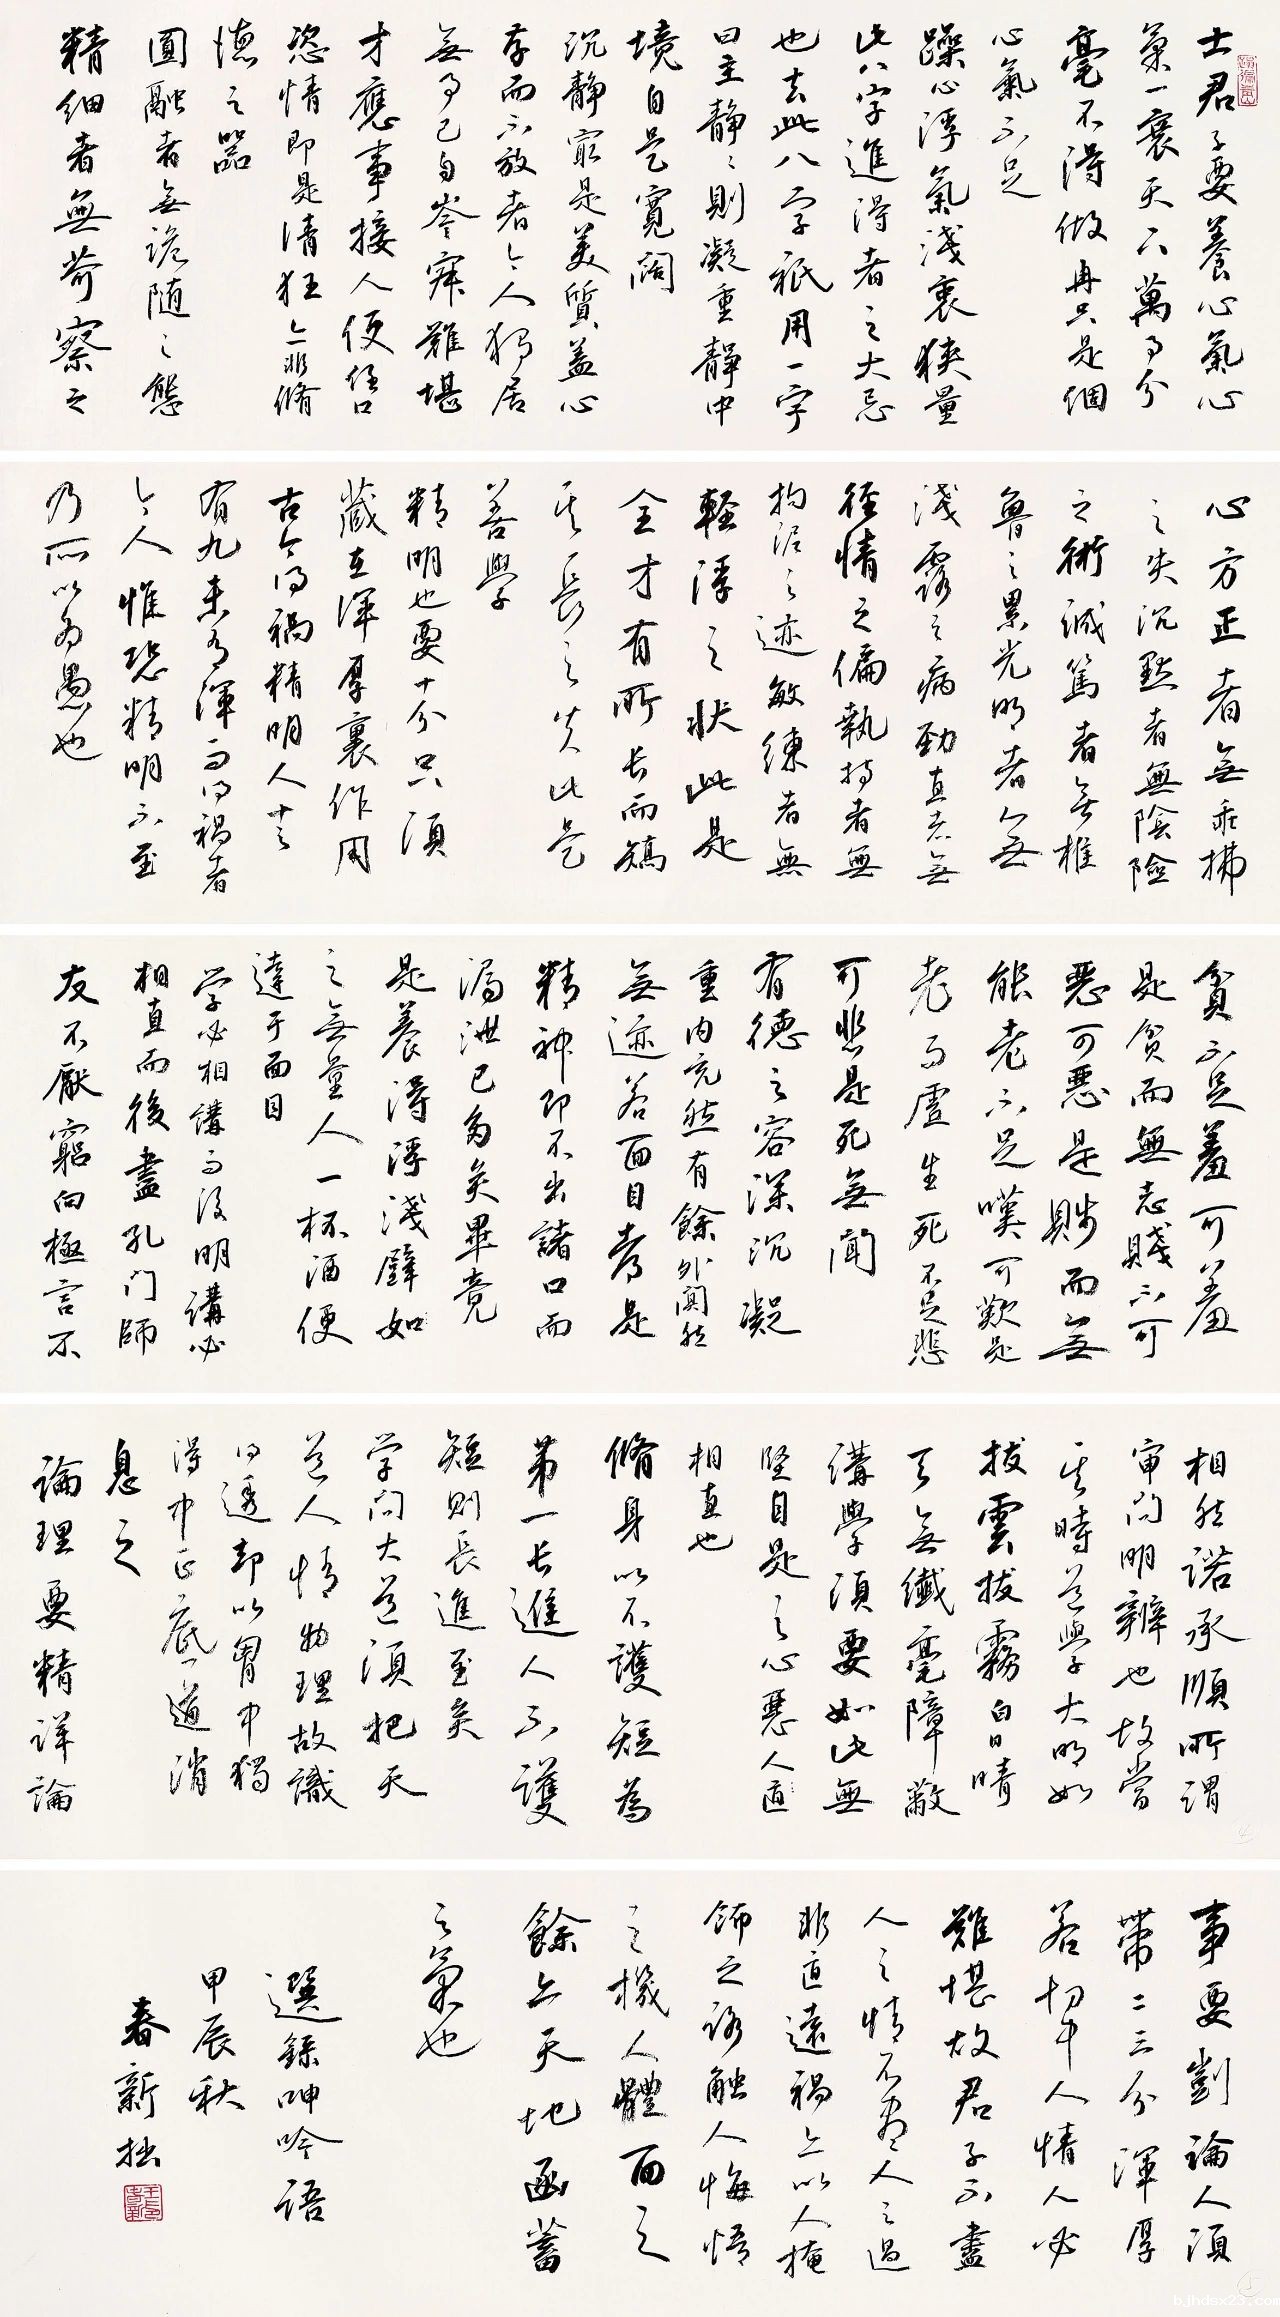 士君子要養心氣心
氣一衰天下萬事分
毫不得做冉只是個
心氣不足
躁心浮氣淺衷狹量
此八字進得者之大忌
也去此八字衹用一字
曰主靜〻則凝重靜中
境自是寬闊
沉靜最是美質蓋心
存而不放者今人獨居
無事已自岑寂難堪
才應事接人便任口
恣情即是清狂亦非脩
德之器
圓融者無詭隨之態
精細者無苛察之
心方正者無乖拂
之失沉默者無陰險
之術誠篤者無椎
魯之累光明者無
淺露之病勁直者無
徑情之偏執持者無
拘泥之迹敏練者無
輕浮之狀此是
全才有所長而矯
其長之失此是
善學
精明也要十分只須
藏在渾厚裏作用
古今得禍精明人十之
有九未有渾而得禍者
今人惟恐精明不至
乃所以為愚也
貧不足羞可羞
是貧而無志賤不可
惡可惡是賤而無
能老不足嘆可歎是
老而虛生死不足悲
可悲是死無聞
有德之容深沉凝
重內充然有餘外闃然
無迹若面目都是
精神即不出諸口而
漏泄已多矣畢竟
是養得浮淺譬如
之無量人一杯酒便
達于面目
学必相講而後明講必
相直而後盡孔门師
友不厭窮问極言不
相然諾承順所謂
审问明辨也故當
其時道學大明如
拔雲披霧白日晴
天無纖毫障蔽
講學須要如此無
堅自是之心惡人直
相直也
脩身以不護短為
第一长進人不護
短則長進至矣
学问大道須把天
道人情物理故識
得透却以胷中獨
得中正底道消
息之
論理要精詳論
事要剴論人須
帶二三分渾厚
若切中人情人必
難堪故君子不盡
人之情不盡人之過
非直遠禍亦以人掩
飾之路触人悔悟
之機人體面之
餘亦天地函蓄
之氣也
選錄呻吟語
甲辰秋
春新拙
bjhdsx23.com